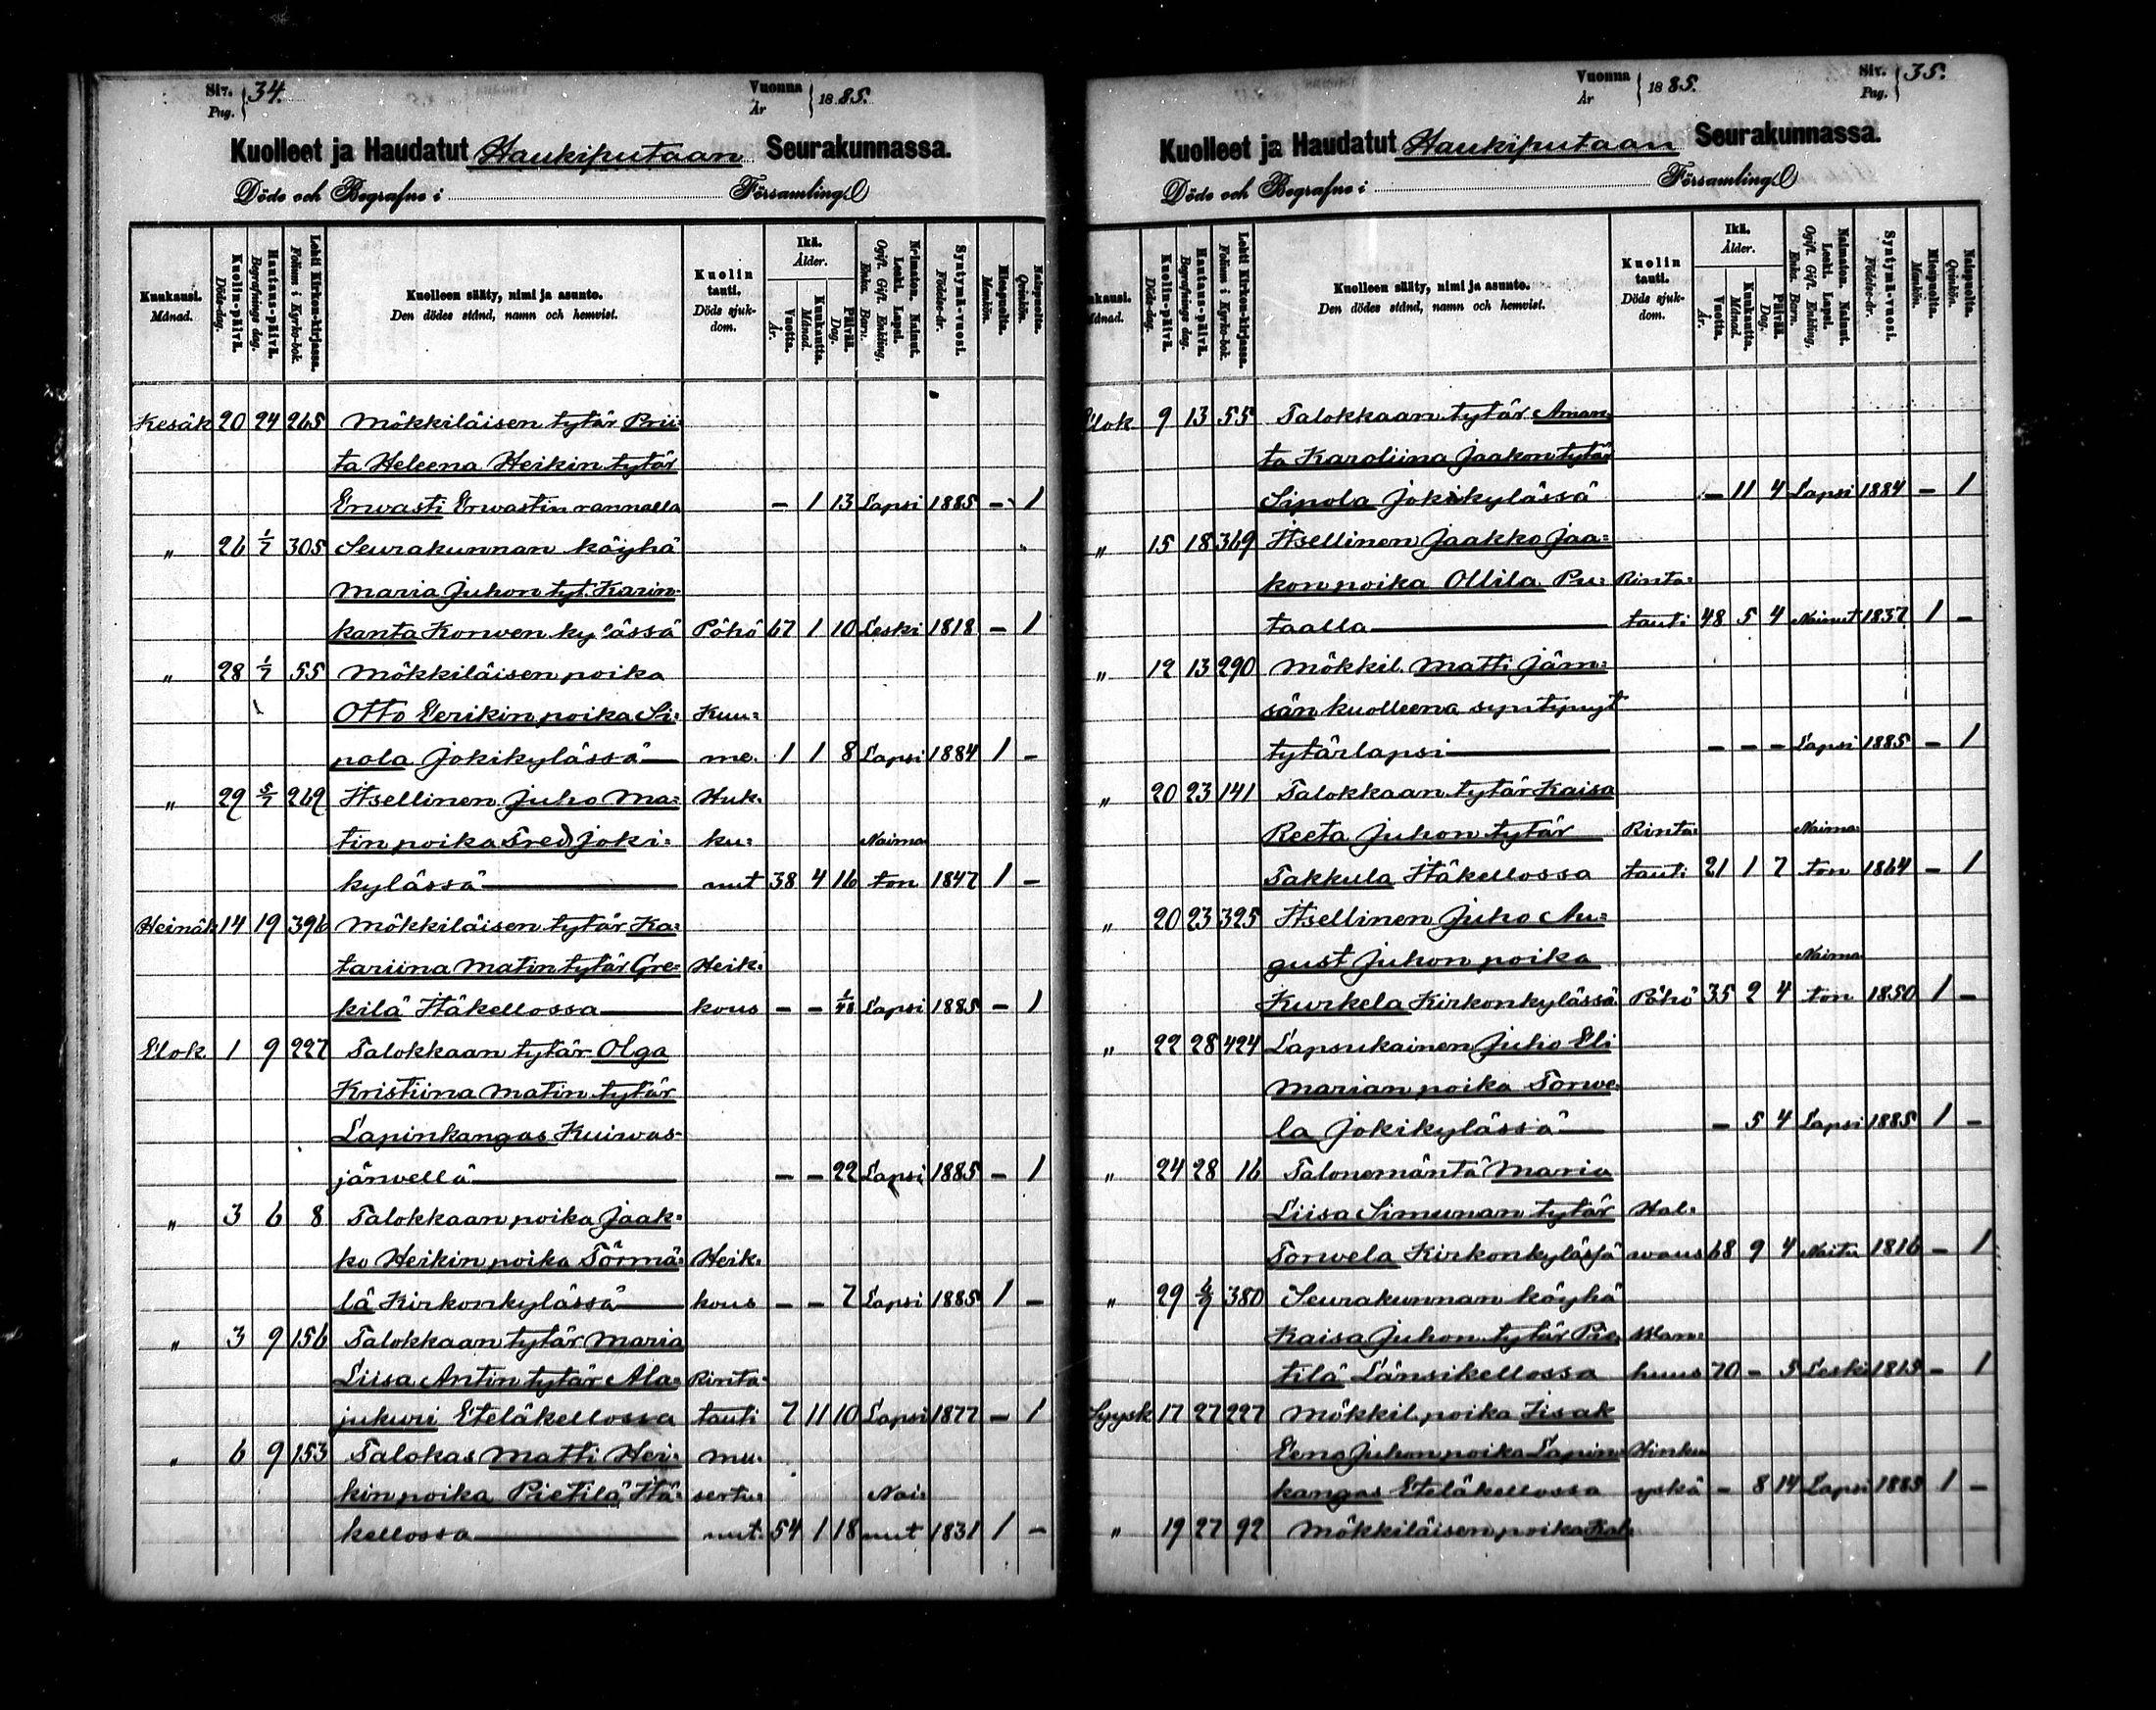 Siv. Pag. 34. Vuonna År 1885.
Kuolleet ja Haudatut Haukiputaan Seurakunnassa.
Döde och Begrafne i Församling
Kuukausi. Månad. Kuolin-päivä. Döds-dag. Hautaus-päivä. Begrafnings dag. Lehti Kirkon-kirjassa. Folium i Kyrko-bok. Kuolleen sääty, nimi ja asunto. Den dödes stånd, namn och hemvist. Kuolin tauti. Döds sjuk-dom. Ikä. Ålder. Vuotta. År. Kuukautta. Månad. Päivää. Dag. Naimaton. Nainut. Leski. Lapsi. Ogift. Gift. Enkling, Enka. Barn. Syntymä-vuosi. Födelse-år. Miespuolta. Mankön. Naispuolta. Qvinkön.
Kesäk 20 24 265 Mökkiläisen tytär Prii=
ta Heleena Heikin tytär
Erwasti Erwastin rannalla — 1 13 Lapsi 1885 — 1
„ 26 1/7 305 Seurakunnan köyhä
Maria Juhon tyt. Karin-
kanta Korwen kylässä Pöhö 67 1 10 Leski 1818 — 1
„ 28 1/7 55 Mökkiläisen poika
Otto Eerikin poika Si= Kuu=
pola Jokikylässä me. 1 1 8 Lapsi 1884 1 —
„ 29 5/7 269 Itsellinen Juho Ma= Huk=
tin poika Fred Joki= ku= Naima
kylässä nut 38 4 16 ton 1847 1 —
Heinäk 14 19 396 Mökkiläisen tytär Ka=
tariina Matin tytär Gre= Heik=
kilä Itäkellossa kous — — 1/48 Lapsi 1885 — 1
Elok. 1 9 227 Talokkaan tytär Olga
Kristiina Matin tytär
Lapinkangas Kuiwas-
järwellä — — 22 Lapsi 1885 — 1
„ 3 6 8 Talokkaan poika Jaak=
ko Heikin poika Törmä= Heik=
lä Kirkonkylässä kous — — 7 Lapsi 1885 1 —
„ 3 9 156 Talokkaan tytär Maria
Liisa Antin tytär Ala= Rinta=
jukuri Eteläkellossa tauti 7 11 10 Lapsi 1877 — 1
„ 6 9 153 Talokas Matti Hei= mu=
kin poika Pietilä Itä= sertu= Nai=
kellossa nut. 54 1 18 nut 1831 1 —
Vuonna År 1885. Siv. Pag. 35.
Kuolleet ja Haudatut Haukiputaan Seurakunnassa.
Döde och Begrafne i Församling
ukausi. Månad. Kuolin-päivä. Döds-dag. Hautaus-päivä. Begrafnings dag. Lehti Kirkon-kirjassa. Folium i Kyrko-bok. Kuolleen sääty, nimi ja asunto. Den dödes stånd, namn och hemvist. Kuolin tauti. Döds sjuk-dom. Ikä. Ålder. Vuotta. År. Kuukautta. Månad. Päivää. Dag. Naimaton. Nainut. Leski. Lapsi. Ogift. Gift. Enkling, Enka. Barn. Syntymä-vuosi. Födelse-år. Miespuolta. Mankön. Naispuolta. Qvinkön.
Elok 9 13 55 Talokkaan tytär Aman=
ta Karoliina Jaakon tytär
Sipola Jokikylässä — 11 4 Lapsi 1884 — 1
„ 15 18 369 Itsellinen Jaakko Jaa=
kon poika Ollila Pu= Rinta=
taalla tauti 48 5 4 Nainut 1837 1 —
„ 12 13 290 Mökkil. Matti Jäm=
sän kuolleena syntynyt
tytärlapsi — — — Lapsi 1885 — 1
„ 20 23 141 Talokkaan tytär Kaisa
Reeta Juhon tytär Rinta= Naima
Takkula Itäkellossa tauti 21 1 7 ton 1864 — 1
„ 20 23 325 Itsellinen Juho Au=
gust Juhon poika Naima
Kurkela Kirkonkylässä Pöhö 35 2 4 ton 1850 1 —
„ 22 28 424 Lapsukainen Juho Eli
Marian poika Torwe=
la Jokikylässä — 5 4 Lapsi 1885 1 —
„ 24 28 16 Talonemäntä Maria
Liisa Simunan tytär Hal=
Torwela Kirkonkylässä waus 68 9 4 Naitu 1816 — 1
„ 29 6/9 380 Seurakunnan köyhä
Kaisa Juhon tytär Pie= Wan=
tilä Länsikellossa huus 70 — 5 Leski 1815 — 1
Syysk 17 27 227 Mökkil. poika Iisak
Eeno Juhon poika Lapin= Hinku
kangas Eteläkellossa yskä — 8 14 Lapsi 1885 1 —
„ 19 27 92 Mökkiläisen poika Kal=